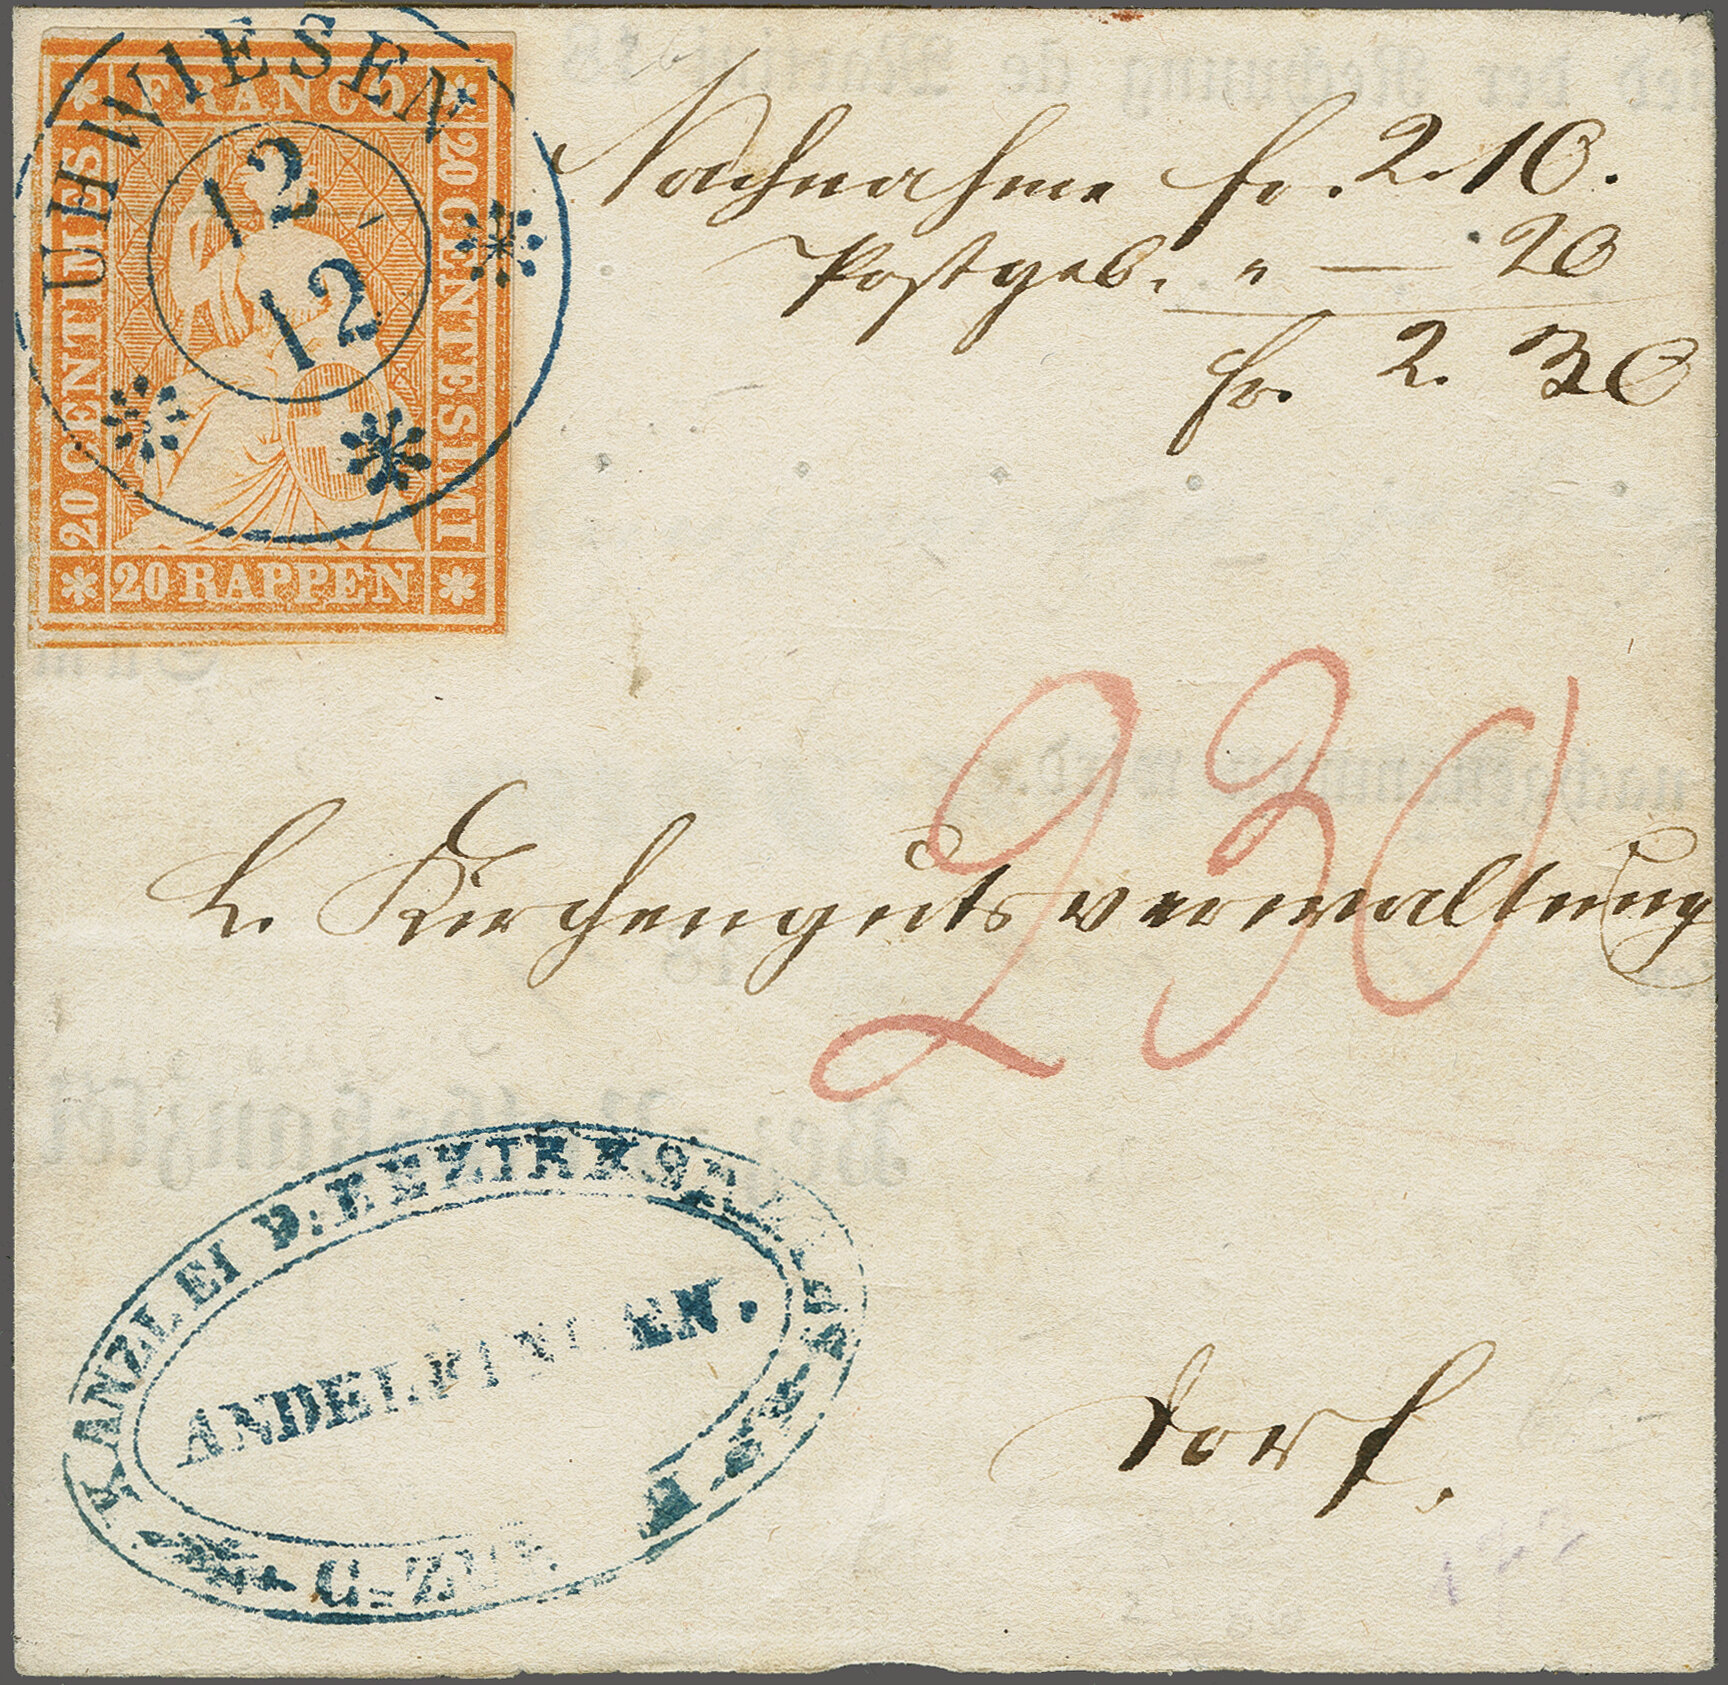 UHWIESEN
12
12
FRANCO
20 CENTIMES
20 CENTESIMI
20 RAPPEN
Nachnahme fr. 2. 10.
Postgeb. " — 20
fr. 2. 30
230
L. Kirchengutsverwaltung
Dorf.
KANZLEI D. BEZIRKS
ANDELFINGEN.